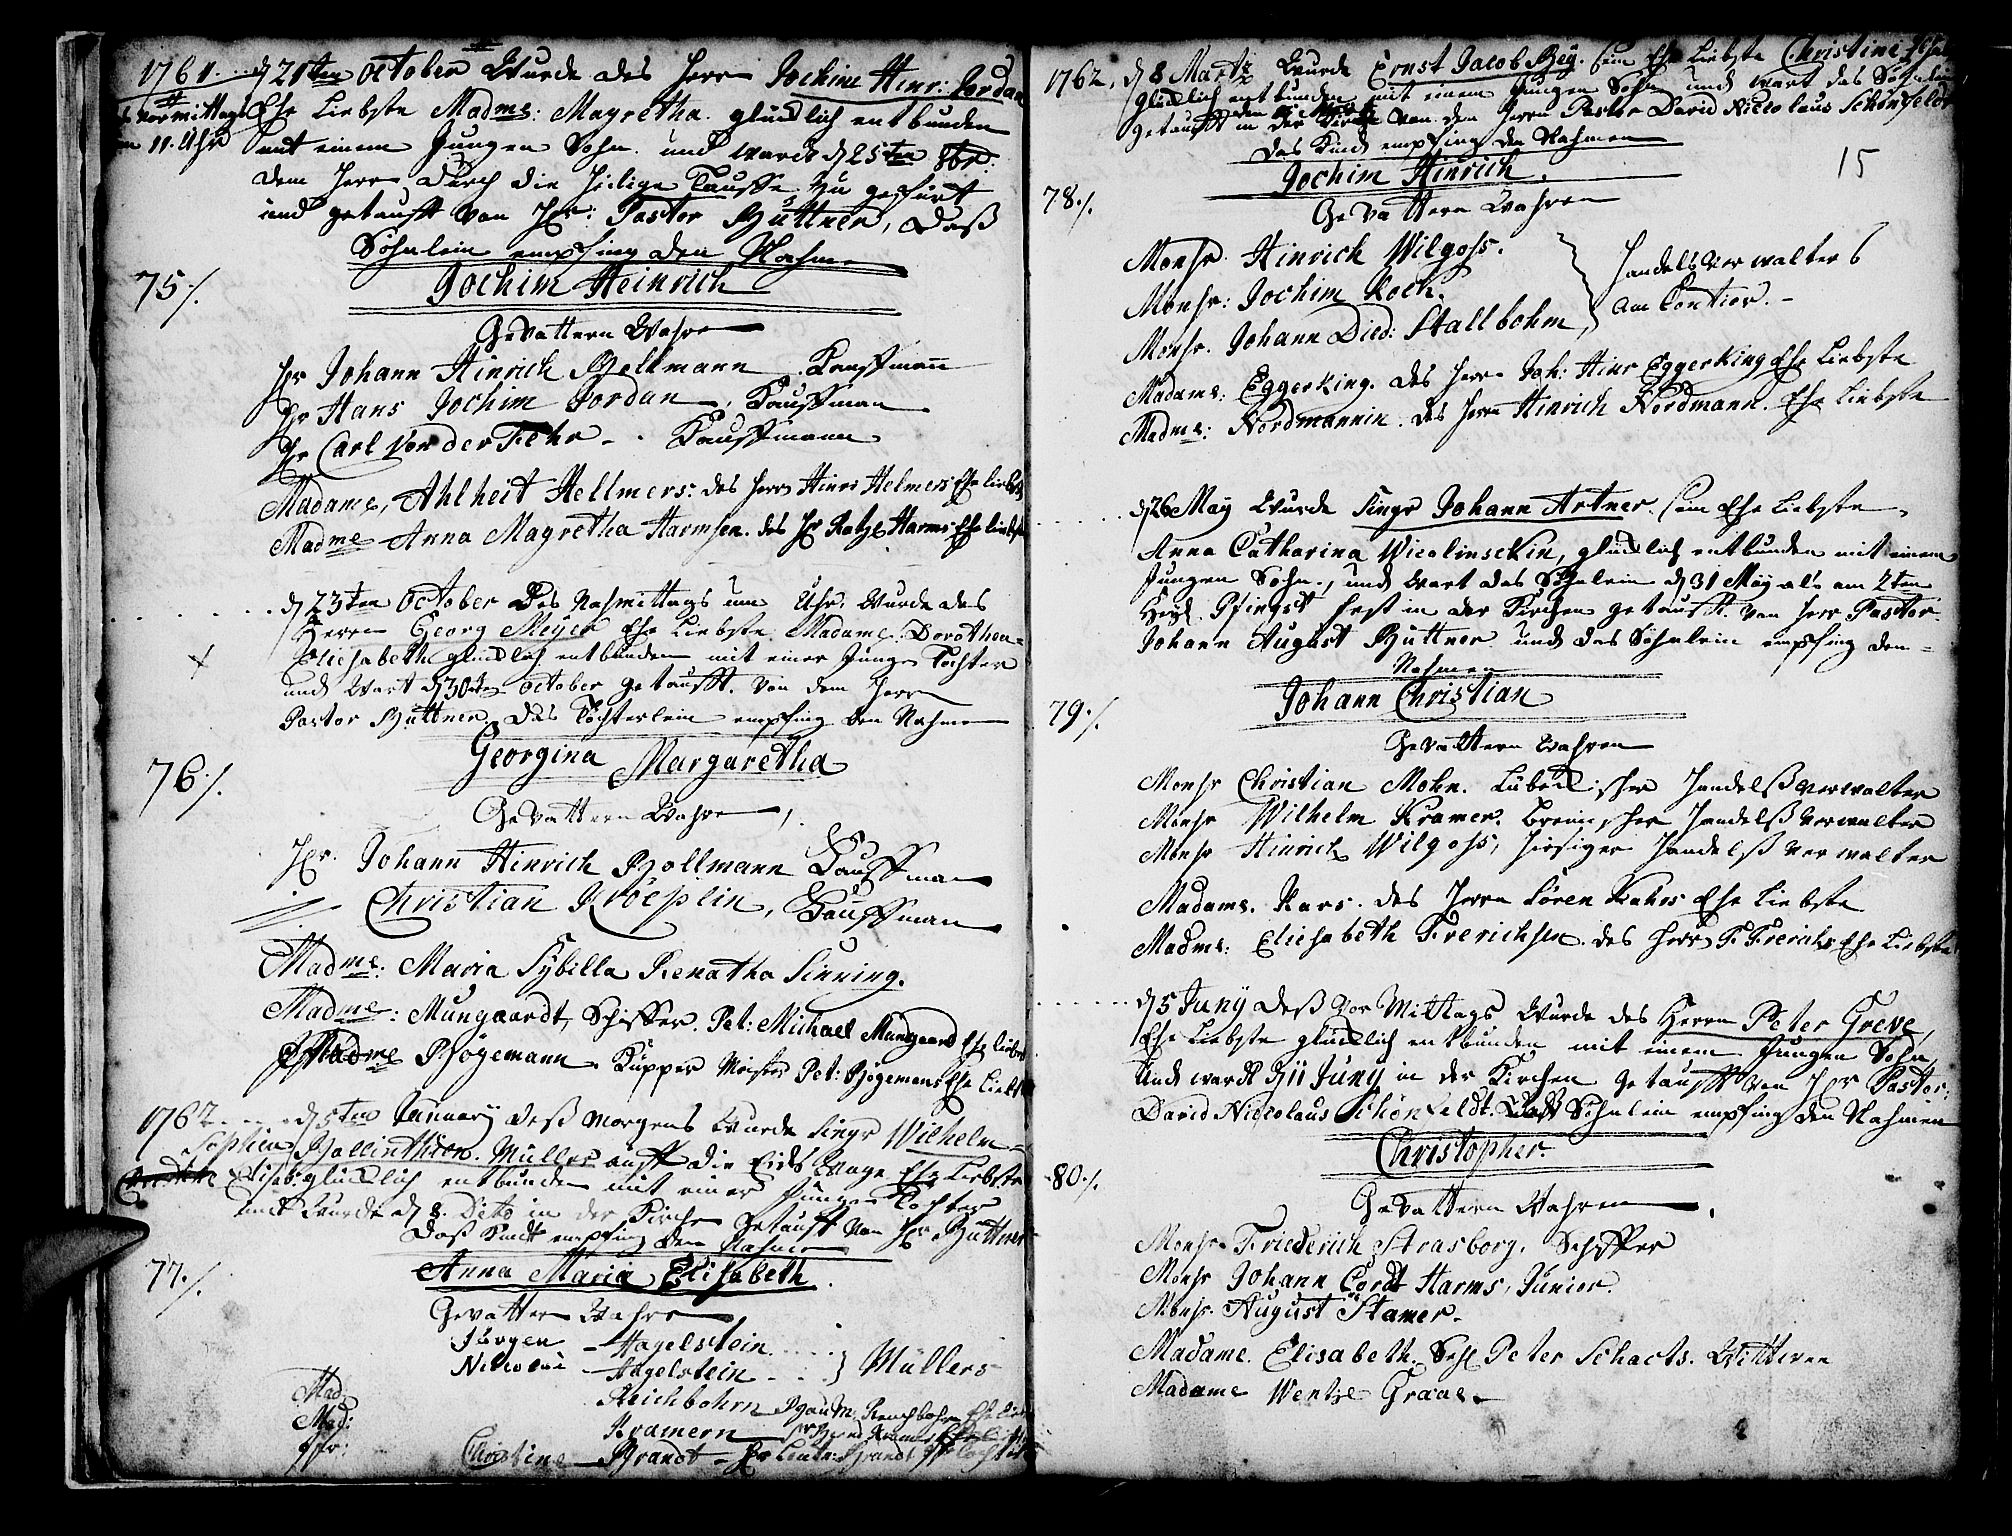 1761. d 21ten October Wurde des Herrn Jochim Hinr: Jordan
Vormittags Ehe Liebste Madme: Magretha. glücklich entbunden
11. Uhr mit einem Jungen Sohn. und ward d 25ten 8br:
dem Herrn durch die Heilige Tauffe zu gefürt
und getaufft von Hr: Pastor Büttner, daß
Söhnlein empfing den Nahme
75 ./. Jochim Heinrich
Gevattern Wahre
Hr Johann Hinrich Bollmann Kauffmann
Hr Hans Jochim Jordan, Kauffman
Hr Carl Von der Fehr - Kauffmann
Madame, Ahlheit Hellmers: des Herrn Hinri Helmers Ehe liebste
Madme Anna Magretha Harmsen. des Hr Harms Ehe liebste
d 23ten October Des Nachmittags um Uhr. Wurde des
Herrn Georg Meyer Ehe Liebste. Madame. Dorothea
Eliesabeth glücklich entbunden mit einer Junge Tochter
und Wart d 30ten October getaufft. von dem Herrn
Pastor Büttner. das Töchterlein empfing den Nahmen
76 ./. Georgina Margaretha
Gevattern Wahre,
Hr. Johann Hinrich Bollmann Kauffman
Christian Kröeplin, Kauffman
Madme: Maria Sybilla Renatha Sinning.
Madme: Mungaardt, Schiffer. Pet: Michael Mungaard Ehe liebste
Madme Bögemann. Küpper Meister Pet: Bögemans Ehe Liebste
1762 d 5ten January deß Morgens Wurde Singr Wilhelm
Sophia Ballinthien. Müller auff die Eids Wage Ehe Liebste
Elisab: glücklich entbunden mit einer Junge Tochter
und Wurde d 8. Dito in der Kirche getaufft von Hr. Büttner
Daß Kindt empfing den Nahmen
77 ./. Anna Maria Elisabeth.
Gevattern Wahre
Jürgen - Hagelstein
Nicolai - Hagelstein } Müllers
Mad. Reichbohrn Reichbohrn Ehe Liebste
Mad: Kramern
Jfr: Christine - Brandt - Hr Leutn: Brandt
1762, d 8 Martz Wurde Ernst Jacob Bey. sein Ehe Liebste Christine
glücklich entbunden mit einem Jungen Sohn und wart das Söhnlein
getaufft in der Kirche von dem Herrn Pastor David Niccolaus Schönfeldt
das Kindt empfing den Nahmen
15
78 ./. Jochim Hinrich.
Gevattern Wahren
Monsr. Hinrich Wilgohs.
Monsr: Jochim Koch.
Monsr. Johann Died: Stallbohm,
Handels Verwalters
am Contior. -
Madame: Eggerking. des Herrn Joh: Hinr Eggerking Ehe Liebste
Madme: Nordmannin. des Herrn Hinrich Nordmann. Ehe Liebste
d 26 May Wurde Singr Johann Artner. sein Ehe Liebste,
Anna Catharina Wicolinsckin, glücklich entbunden mit einem
Jungen Sohn, und Wart das Söhnlein d 31 May als am 2ten
Heyl. Pfingst fest in der Kirchen getaufft. von Herr Pastor
Johann August Büttner und das Söhnlein empfing den
Nahmen
79 ./. Johann Christian
Gevattern Wahren
Monsr Christian Mohn. Lübeckscher Handelß Verwalter
Monsr Wilhelm Kramer. Bremischer Handelß Verwalter
Monsr Hinrich Wilgohs, hiesiger Handelß Verwalter
Madame. Kars. des Herrn Sören Kahrs Ehe Liebste
Madme: Eliesabeth Frerichsen. des Herrn F. Frerichs Ehe Liebste
d 5 Juny Deß Vor Mittags Wurde des Herrn Peter Greve,
Ehe Liebste glücklich entbunden mit einem Jungen Sohn
Und wardt d 11 Juny in der Kirchen getaufft von Hr Pastor:
David Niccolaus Schönfeldt. Daß Söhnlein empfing den Nahmen
80 ./. Christopher.
Gevattern Wahren
Monsr. Friederich Strasborg. Schiffer
Monsr Johann Cordt Harms, Junior.
Monsr. August Stamer.
Madame. Elisabeth. Sehl Peter Schacts. Wittwen
Madame Wentze Graae.